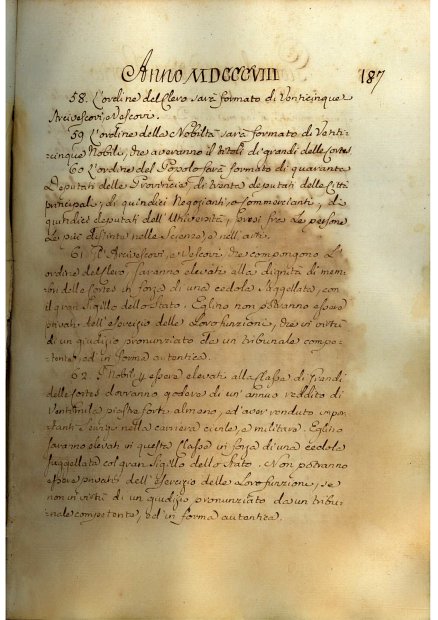 Anno MDCCCVIII 187
58. L'ordine del Clero sarà formato di Venticinque
Arcivescovi, o Vescovi.
59 L'ordine della Nobiltà sarà formato di Venti-
cinque Nobili, che averanno il titolo di grandi delle Cortes
60 L'ordine del Popolo sarà formato di quaranta
Deputati delle Provincie, di trenta deputati delle Città
principali, di quindici Negozianti, o commercianti, di
quindici deputati dell'Università, presi fra le persone
le più distinte nelle Scienze, o nell'arti.
61. Gl'Arcivescovi, e Vescovi, che compongono l'
ordine del Clero saranno elevati alla dignità di mem-
bri delle Cortes in forza di una cedola suggellata, con
il gran Sigillo dello Stato. Eglino non potranno essere
privati dell'esercizio delle Loro funzioni, che in virtù
di un giudizio pronunziato da un tribunale compe-
tente, ed in forma autentica.
62. I Nobili p essere elevati alla Classe di Grandi
delle Cortes dovranno godere di un'annua reddita di
Ventimila piastre forti almeno, ed aver renduto impor-
tanti Servizi nella carriera civile, o militare. Eglino
saranno elevati in questa Classe in forza di una cedola
suggellata col gran Sigillo dello Stato. Non potranno
essere privati dell'esercizio delle Loro funzioni, se
non in virtù di un giudizio pronunziato da un tribu-
nale competente, ed in forma autentica.